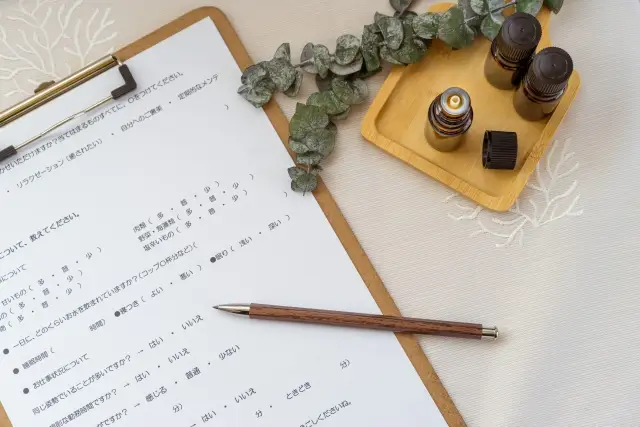 つけてください。
かせいただけますか?当てはまるものすべてに、○をつけてください。
・ リラクゼーション(癒されたい) ・ 自分へのご褒美 ・ 定期的なメンテ
)
について、教えてください。
について
肉類 ( 多 ・ 普 ・ 少 )
野菜・海藻類 ( 多 ・ 普 ・ 少 )
塩辛いもの ( 多 ・ 普 ・ 少 )
甘いもの ( 多 ・ 普 ・ 少 )
( 多 ・ 普 ・ 少 )
( 多 ・ 普 ・ 少 )
● 一日に、どのくらいお水を飲まれていますか?(コップ○杯分など)(
● 睡眠時間 ( 時間) ●寝つき ( よい ・ 悪い ) ●眠り ( 浅い ・ 深い )
● お仕事状況について
同じ姿勢でいることが多いですか? → はい ・ いいえ
規則的な勤務時間ですか? → はい ・ いいえ
ですか? → 感じる ・ 普通 ・ 少ない
分) → はい ・ いいえ
分 ・ ときどき 分)
ごしくださいね。